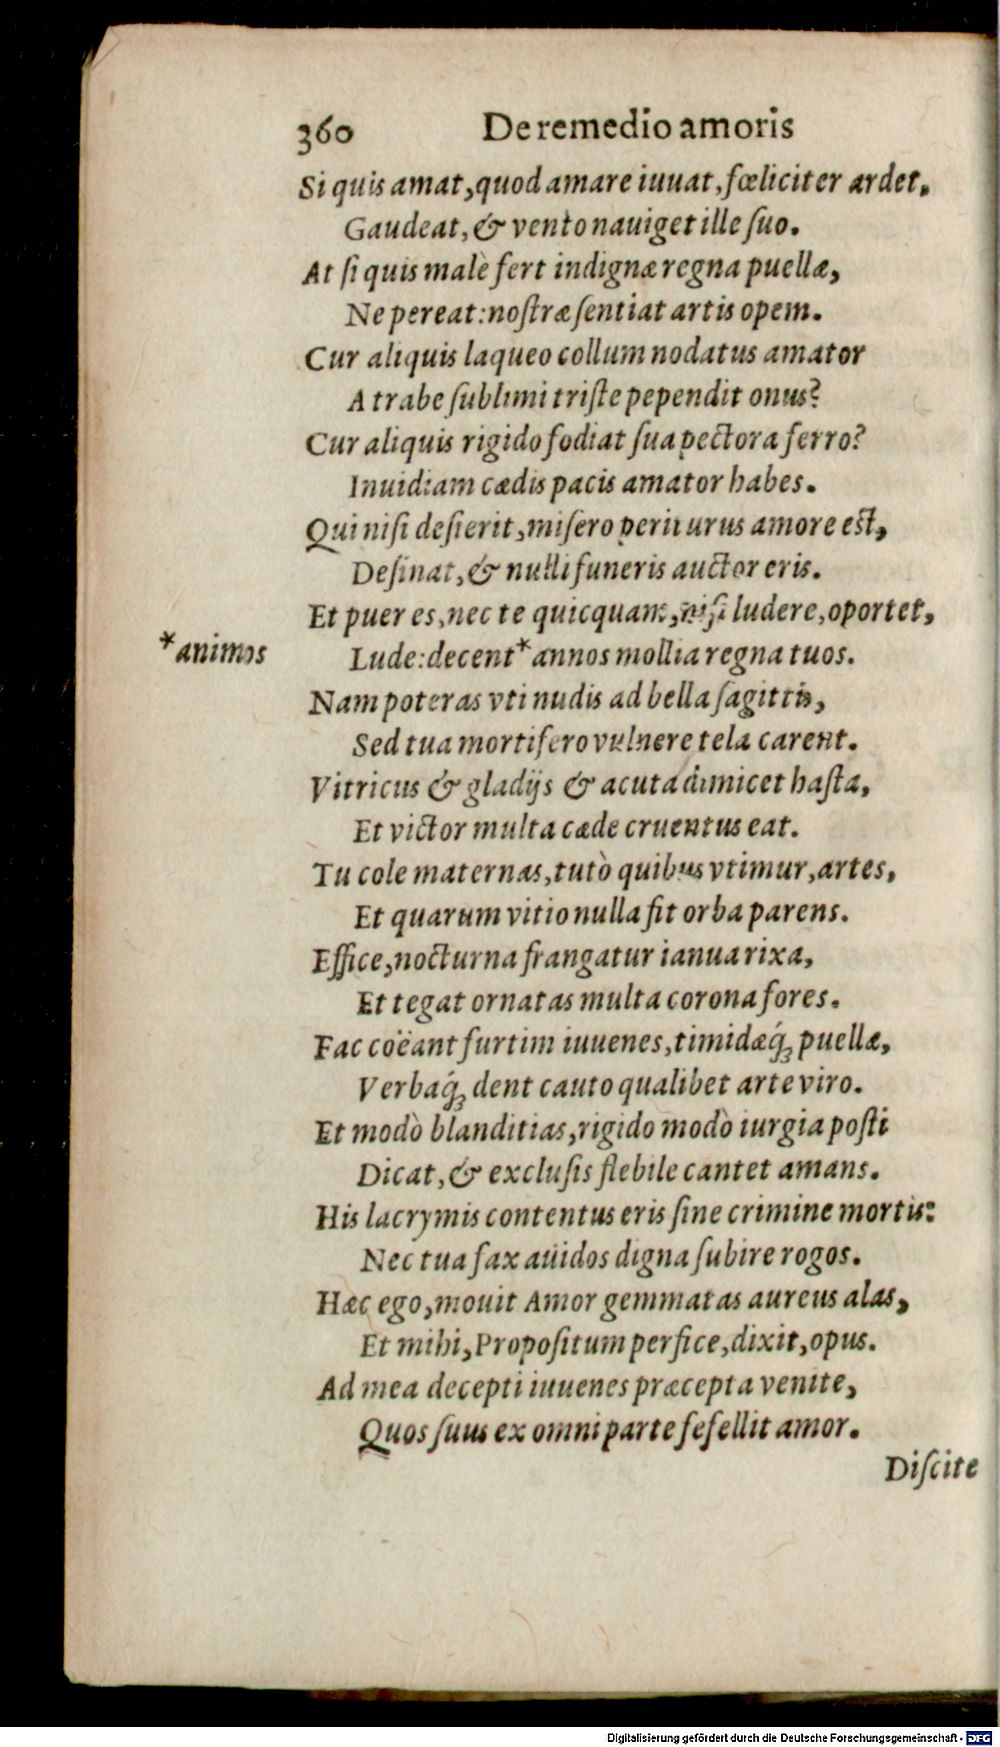 360 De remedio amoris
Si quis amat, quod amare iuuat, fœliciter ardet,
Gaudeat, & vento nauiget ille ſuo.
At ſi quis malè fert indignæ regna puellæ,
Ne pereat: noſtræ ſentiat artis opem.
Cur aliquis laqueo collum nodatus amator
A trabe ſublimi triſte pependit onus?
Cur aliquis rigido fodiat ſua pectora ferro?
Inuidiam cædis pacis amator habes.
Qui niſi deſierit, miſero periturus amore eſt,
Deſinat, & nulli funeris auctor eris.
Et puer es, nec te quicquam, niſi ludere, oportet,
*animos
Lude: decent *annos mollia regna tuos.
Nam poteras vti nudis ad bella ſagittis,
Sed tua mortifero vulnere tela carent.
Vitricus & gladijs & acuta dimicet haſta,
Et victor multa cæde cruentus eat.
Tu cole maternas, tutò quibus vtimur, artes,
Et quarum vitio nulla fit orba parens.
Effice, nocturna frangatur ianua rixa,
Et tegat ornatas multa corona fores.
Fac coëant furtim iuuenes, timidæq́; puellæ,
Verbaq́; dent cauto qualibet arte viro.
Et modò blanditias, rigido modò iurgia poſti
Dicat, & excluſis flebile cantet amans.
His lacrymis contentus eris ſine crimine mortis:
Nec tua fax auidos digna ſubire rogos.
Hæc ego, mouit Amor gemmatas aureus alas,
Et mihi, Propoſitum perfice, dixit, opus.
Ad mea decepti iuuenes præcepta venite,
Quos ſuus ex omni parte fefellit amor.
Diſcite
Digitalisierung gefördert durch die Deutsche Forschungsgemeinschaft - DFG